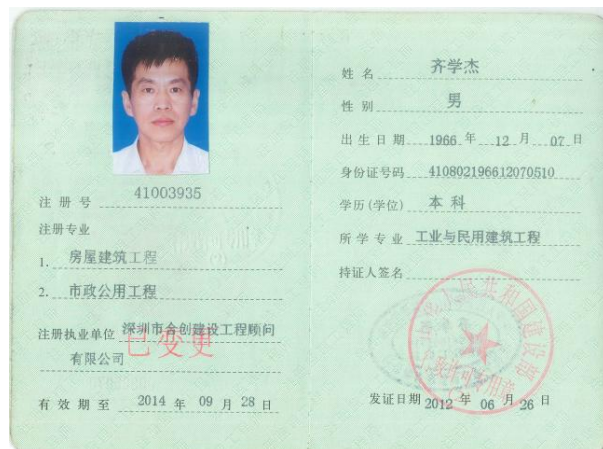 注册号 41003935
注册专业
1. 房屋建筑工程
2. 市政公用工程
注册执业单位 深圳市合创建设工程顾问
有限公司
已变更
有效期至 2014 年 09 月 28 日
姓名 齐学杰
性别 男
出生日期 1966 年 12 月 07 日
身份证号码 410802196612070510
学历(学位) 本科
所学专业 工业与民用建筑工程
持证人签名
中华人民共和国建设部
发证日期 2012 年 06 月 26 日